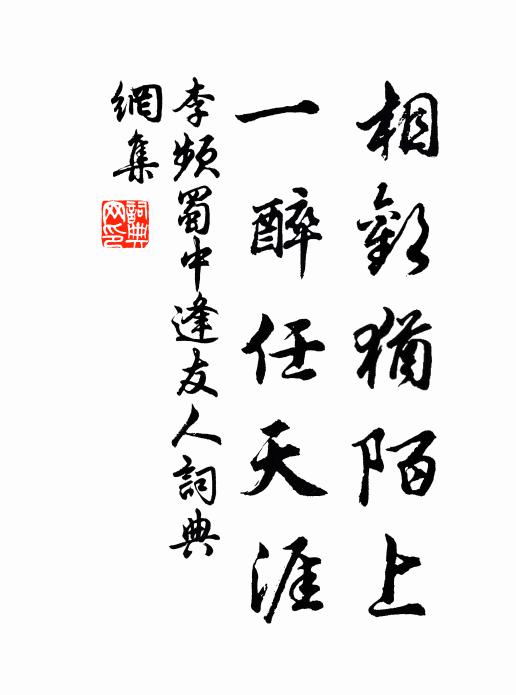 相歡猶陌上
一醉任天涯
李頻蜀中逢友人詞典
網集
詞典
网印